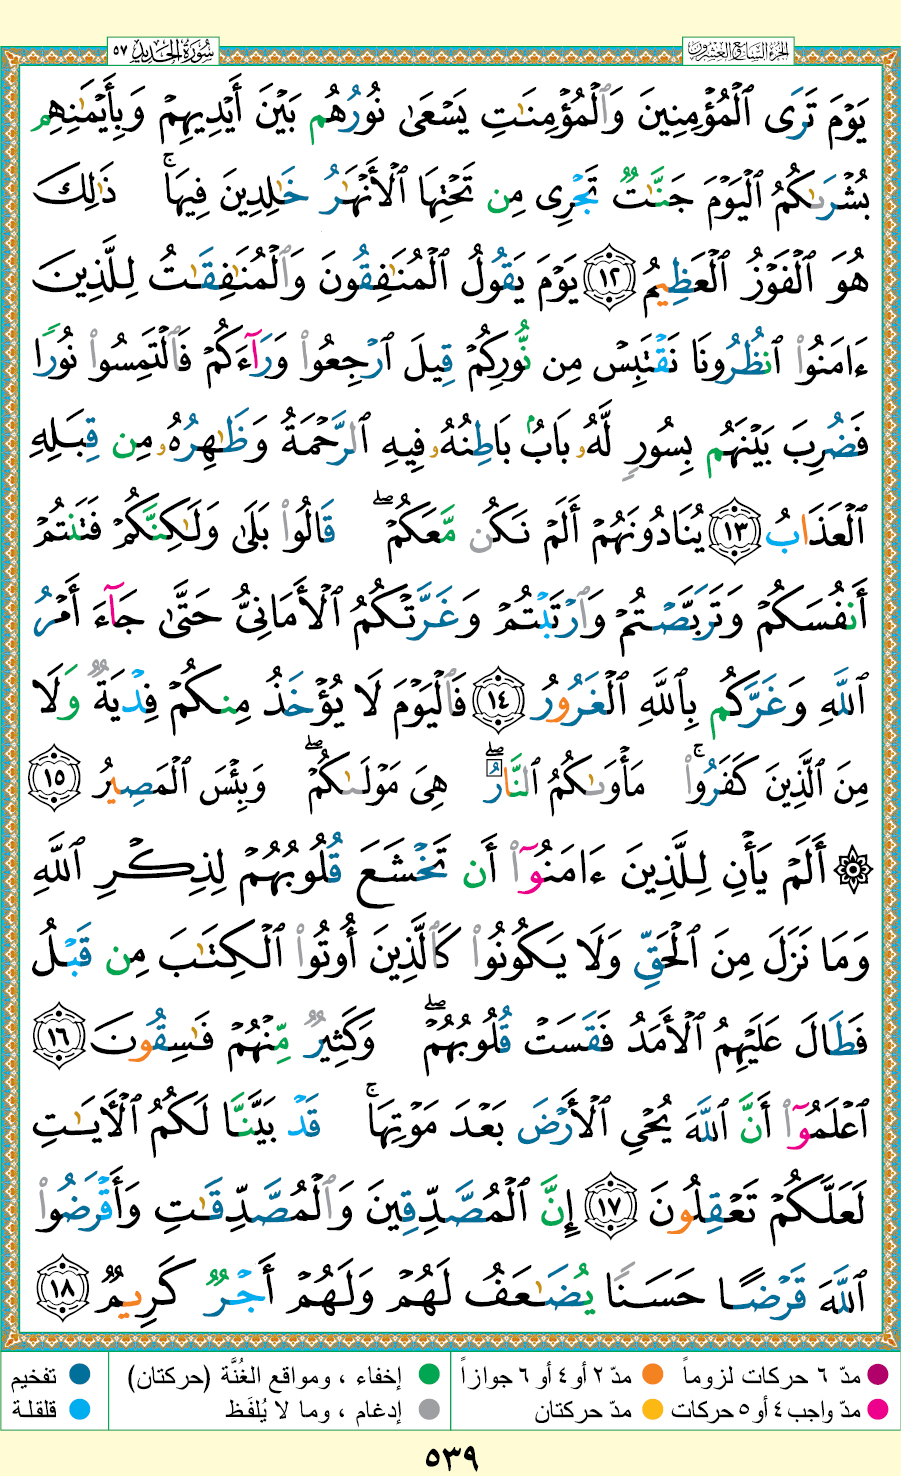 الجزء السابع والعشرون
سُورَةُ الحَدِيد ٥٧
يَوْمَ تَرَى ٱلْمُؤْمِنِينَ وَٱلْمُؤْمِنَٰتِ يَسْعَىٰ نُورُهُم بَيْنَ أَيْدِيهِمْ وَبِأَيْمَٰنِهِم
بُشْرَىٰكُمُ ٱلْيَوْمَ جَنَّٰتٌ تَجْرِى مِن تَحْتِهَا ٱلْأَنْهَٰرُ خَٰلِدِينَ فِيهَا ۚ ذَٰلِكَ
هُوَ ٱلْفَوْزُ ٱلْعَظِيمُ ١٢ يَوْمَ يَقُولُ ٱلْمُنَٰفِقُونَ وَٱلْمُنَٰفِقَٰتُ لِلَّذِينَ
ءَامَنُوا۟ ٱنظُرُونَا نَقْتَبِسْ مِن نُّورِكُمْ قِيلَ ٱرْجِعُوا۟ وَرَآءَكُمْ فَٱلْتَمِسُوا۟ نُورًا
فَضُرِبَ بَيْنَهُم بِسُورٍ لَّهُۥ بَابٌۢ بَاطِنُهُۥ فِيهِ ٱلرَّحْمَةُ وَظَٰهِرُهُۥ مِن قِبَلِهِ
ٱلْعَذَابُ ١٣ يُنَادُونَهُمْ أَلَمْ نَكُن مَّعَكُمْ ۖ قَالُوا۟ بَلَىٰ وَلَٰكِنَّكُمْ فَتَنتُمْ
أَنفُسَكُمْ وَتَرَبَّصْتُمْ وَٱرْتَبْتُمْ وَغَرَّتْكُمُ ٱلْأَمَانِىُّ حَتَّىٰ جَآءَ أَمْرُ
ٱللَّهِ وَغَرَّكُم بِٱللَّهِ ٱلْغَرُورُ ١٤ فَٱلْيَوْمَ لَا يُؤْخَذُ مِنكُمْ فِدْيَةٌ وَلَا
مِنَ ٱلَّذِينَ كَفَرُوا۟ ۚ مَأْوَىٰكُمُ ٱلنَّارُ ۖ هِىَ مَوْلَىٰكُمْ ۖ وَبِئْسَ ٱلْمَصِيرُ ١٥
۞ أَلَمْ يَأْنِ لِلَّذِينَ ءَامَنُوٓا۟ أَن تَخْشَعَ قُلُوبُهُمْ لِذِكْرِ ٱللَّهِ
وَمَا نَزَلَ مِنَ ٱلْحَقِّ وَلَا يَكُونُوا۟ كَٱلَّذِينَ أُوتُوا۟ ٱلْكِتَٰبَ مِن قَبْلُ
فَطَالَ عَلَيْهِمُ ٱلْأَمَدُ فَقَسَتْ قُلُوبُهُمْ ۖ وَكَثِيرٌ مِّنْهُمْ فَٰسِقُونَ ١٦
ٱعْلَمُوٓا۟ أَنَّ ٱللَّهَ يُحْىِ ٱلْأَرْضَ بَعْدَ مَوْتِهَا ۚ قَدْ بَيَّنَّا لَكُمُ ٱلْءَايَٰتِ
لَعَلَّكُمْ تَعْقِلُونَ ١٧ إِنَّ ٱلْمُصَّدِّقِينَ وَٱلْمُصَّدِّقَٰتِ وَأَقْرَضُوا۟
ٱللَّهَ قَرْضًا حَسَنًا يُضَٰعَفُ لَهُمْ وَلَهُمْ أَجْرٌ كَرِيمٌ ١٨
مدّ ٦ حركات لزوماً مدّ ٢ أو ٤ أو ٦ جوازاً إخفاء ، ومواقع الغُنَّة (حركتان) تفخيم
مدّ واجب ٤ أو ٥ حركات مدّ حركتان إدغام ، وما لا يُلفَظ قلقلة
٥٣٩